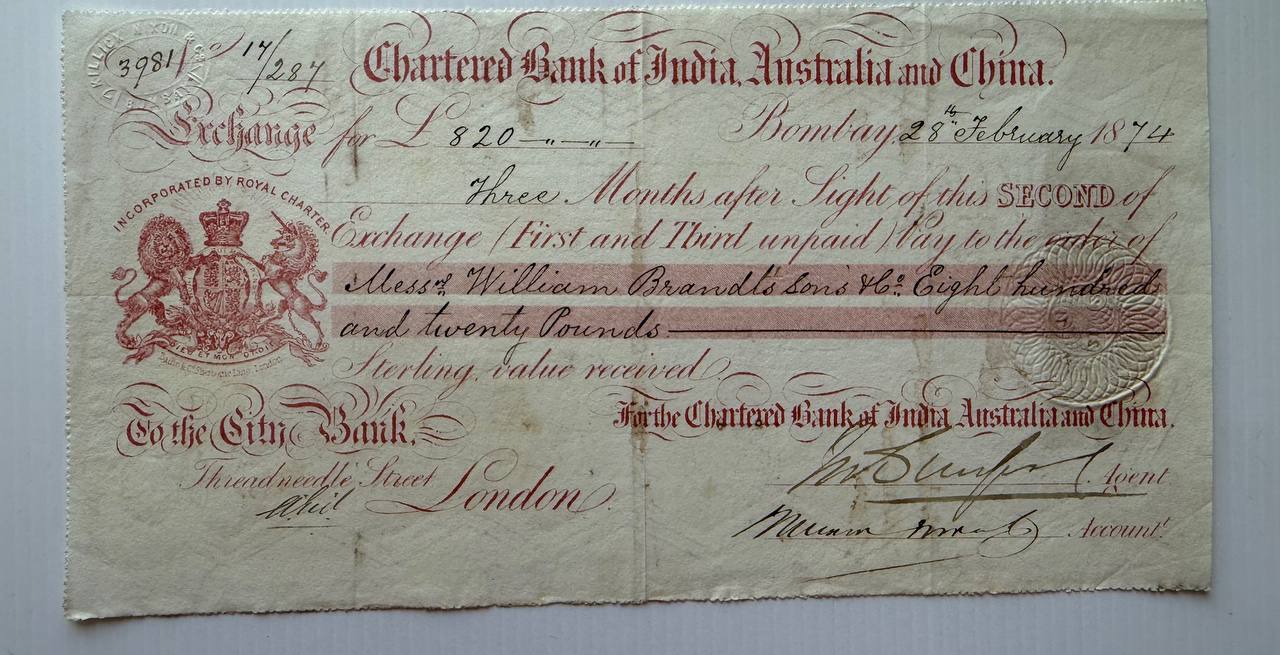 3981/ 17/287
Chartered Bank of India, Australia and China.
Exchange for £ 820 —"—"—
Bombay, 28th February 1874
Three Months after Sight of this SECOND of
INCORPORATED BY ROYAL CHARTER
Exchange (First and Third unpaid) Pay to the order of
Messrs William Brandt's Sons & Co. Eight hundred
and twenty Pounds
DIEU ET MON DROIT
Sterling, value received
To the City Bank,
For the Chartered Bank of India, Australia and China.
Threadneedle Street
London.
Agent
Accountt.